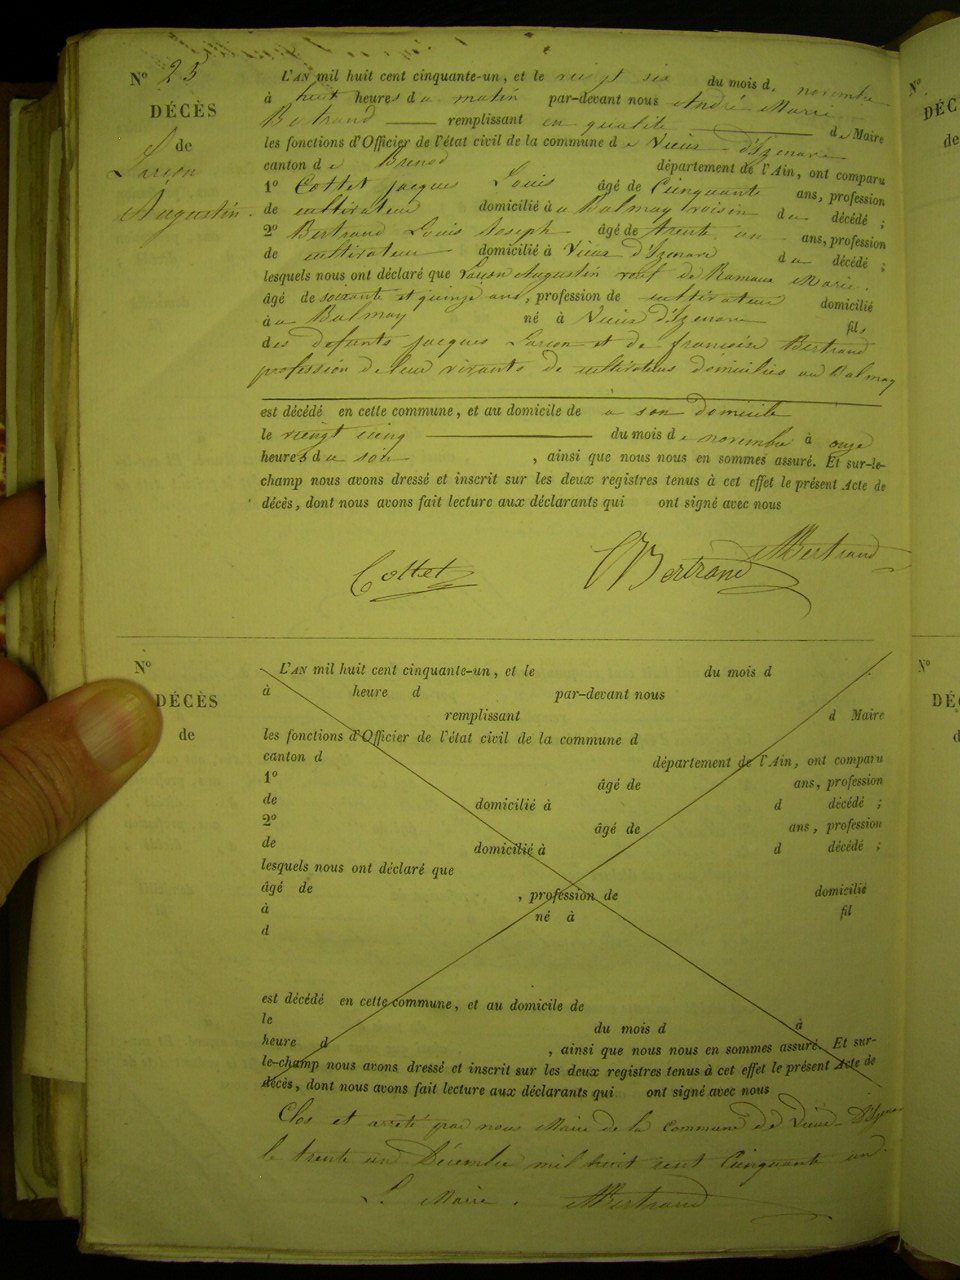 N° 25
DÉCÈS
de
Larson
Augustin.
L'AN mil huit cent cinquante-un, et le vingt six du mois d. novembre
à huit heures du matin par-devant nous André Marie
Bertrand remplissant en qualité de Maire
les fonctions d'Officier de l'état civil de la commune de Vieux d'Izenave
canton de Brenod département de l'Ain, ont comparu
1° Cottet Jacques Louis âgé de Cinquante ans, profession
de cultivateur domicilié à Balmay voisin du décédé ;
2° Bertrand Louis Joseph âgé de trente un ans, profession
de cultivateur domicilié à Vieux d'Izenave du décédé ;
lesquels nous ont déclaré que Larson Augustin veuf de Marie.
âgé de soixante et quinze ans, profession de cultivateur domicilié
à Balmay né à Vieux d'Izenave fils
des défunts Jacques Larson et de Bertrand
profession de leur vivants de cultivateurs domiciliés au Balmay
est décédé en cette commune, et au domicile de a son domicile
le vingt cinq du mois de novembre à onze
heures du soir , ainsi que nous nous en sommes assuré. Et sur-le-
champ nous avons dressé et inscrit sur les deux registres tenus à cet effet le présent Acte de
décès, dont nous avons fait lecture aux déclarants qui ont signé avec nous
Cottet Bertrand Bertrand
N°
DÉCÈS
de
L'AN mil huit cent cinquante-un, et le du mois d
à heure d par-devant nous
remplissant d Maire
les fonctions d'Officier de l'état civil de la commune d
canton d département de l'Ain, ont comparu
1° âgé de ans, profession
de domicilié à d décédé ;
2° âgé de ans, profession
de domicilié à d décédé ;
lesquels nous ont déclaré que
âgé de , profession de domicilié
à né à fil
d
est décédé en cette commune, et au domicile de
le du mois d à
heure d , ainsi que nous nous en sommes assuré. Et sur-
le-champ nous avons dressé et inscrit sur les deux registres tenus à cet effet le présent Acte de
décès, dont nous avons fait lecture aux déclarants qui ont signé avec nous
Clos et arrêté par nous Maire de la commune de Vieux
le trente un Décembre mil huit cent Cinquante un.
Le Maire. Bertrand
N°
DÉC
de
N°
DÉC
d